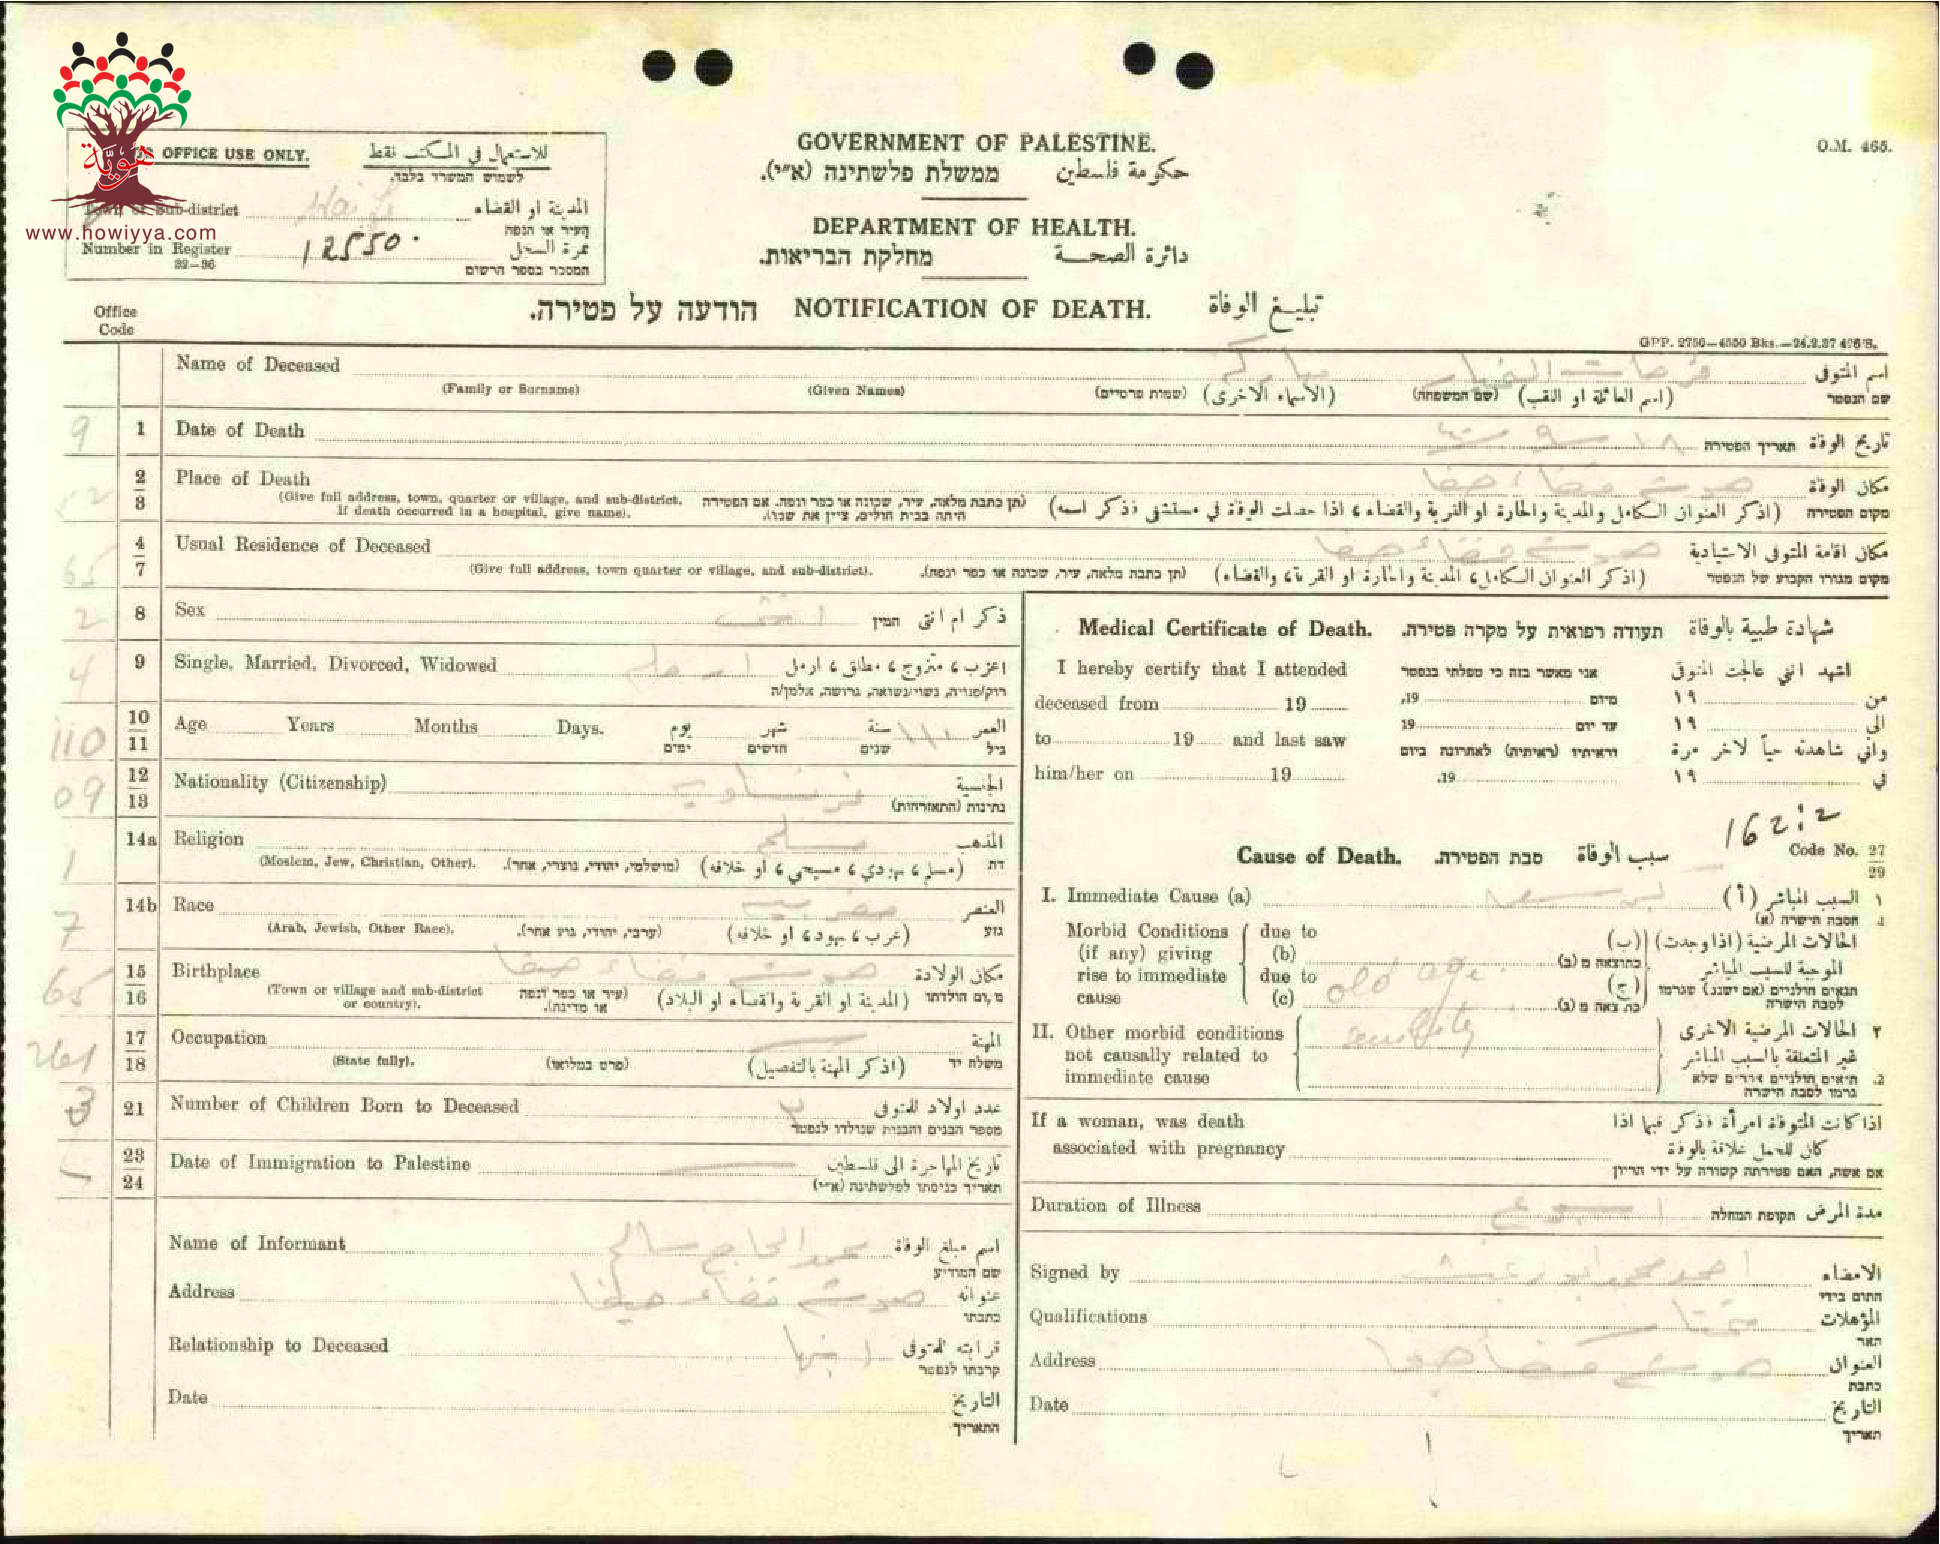 هويّة
www.howiyya.com
OFFICE USE ONLY. للاستعمال في المكتب فقط
לשמוש המשרד בלבד.
Town or Sub-district Haifa المدينة او القضاء
העיר או הנפה
Number in Register 12550. نمرة السجل
32-36 המספר בספר הרשום
GOVERNMENT OF PALESTINE.
ממשלת פלשתינה (א"י). حكومة فلسطين
DEPARTMENT OF HEALTH.
מחלקת הבריאות. دائرة الصحة
O.M. 465.
הודעה על פטירה. NOTIFICATION OF DEATH. تبليغ الوفاة
Office
Code
GPP. 2750—4550 Bks.—24.2.37 426/S.
Name of Deceased مباركه اسم المتوفى
(Family or Surname) (Given Names) (שמות פרטיים) (الأسماء الاخرى) (שם המשפחה) (اسم العائلة او اللقب) שם הנפטר
9 1 Date of Death ١٨ ٩ תאריך הפטירה تاريخ الوفاة
2 Place of Death قضاء حيفا مكان الوفاة
3 (Give full address, town, quarter or village, and sub-district. (תן כתבת מלאה, עיר, שכונה או כפר ונפה. אם הפטירה (اذكر العنوان الكامل والمدينة والحارة او القرية والقضاء، اذا حصلت الوفاة في مستشفى فذكر اسمه) מקום הפטירה
If death occurred in a hospital, give name). היתה בבית חולים, ציין את שמו).
65 4 Usual Residence of Deceased قضاء حيفا مكان اقامة المتوفى الاعتيادية
7 (Give full address, town quarter or village, and sub-district). (תן כתבת מלאה, עיר, שכונה או כפר ונפה). (اذكر العنوان الكامل، المدينة والحارة او القرية، والقضاء) מקום מגורו הקבוע של הנפטר
2 8 Sex انثى המין ذكر ام انثى
4 9 Single, Married, Divorced, Widowed ارمله اعزب، متزوج، مطلق، ارمل
רוק/פנויה, נשוי/נשואה, גרושה, אלמן/ה
110 10 11 Age Years Months Days. يوم شهر سنة ١١٠ العمر
ימים חדשים שנים גיל
09 12 13 Nationality (Citizenship) الجنسية
נתינות (התאזרחות)
1 14a Religion مسلمه المذهب
(Moslem, Jew, Christian, Other). (מושלמי, יהודי, נוצרי, אחר). (مسلم، يهودي، مسيحي، او خلافه) דת
7 14b Race مغربيه العنصر
(Arab, Jewish, Other Race). (ערבי, יהודי, גזע אחר). (عرب، يهود، او خلافه) גזע
65 15 16 Birthplace قضاء حيفا مكان الولادة
(Town or village and sub-district (עיר או כפר ונפה (المدينة او القرية والقضاء او البلاد) מקום הולדתו
or country). או מדינה).
261 17 18 Occupation المهنة
(State fully). (פרט במלואו) (اذكر المهنة بالتفصيل) משלח יד
3 21 Number of Children Born to Deceased ٣ عدد اولاد المتوفى
מספר הבנים והבנות שנולדו לנפטר
23 24 Date of Immigration to Palestine تاريخ المهاجرة الى فلسطين
תאריך כניסתו לפלשתינה (א"י)
Name of Informant محمد الحاج صالح اسم مبلغ الوفاة
שם המודיע
Address قضاء حيفا عنوانه
כתבתו
Relationship to Deceased ابنها قرابته للمتوفى
קרבתו לנפטר
Date التاريخ
התאריך
Medical Certificate of Death. תעודה רפואית על מקרה פטירה. شهادة طبية بالوفاة
I hereby certify that I attended אני מאשר בזה כי טפלתי בנפטר اشهد انني عالجت المتوفى
deceased from 19 מיום 19, من ١٩
to 19 and last saw עד יום 19 الى ١٩
וראיתיו (ראיתיה) לאחרונה ביום واني شاهدته حياً لآخر مرة
him/her on 19 19. في ١٩
162:2
Code No. 27
29
Cause of Death. סבת הפטירה. سبب الوفاة
I. Immediate Cause (a) كبر سن السبب المباشر (أ) ١
הסבה הישרה (א) 1.
Morbid Conditions due to الحالات المرضية (اذا وجدت) (ب)
(if any) giving (b) כתוצאה מ (ב) الموجبة للسبب المباشر
rise to immediate due to (ج) תנאים חולניים (אם ישנם) שגרמו
cause (c) old age כתוצאה מ (ג) לסבה הישרה
II. Other morbid conditions senility الحالات المرضية الاخرى ٢
not causally related to غير المتعلقة بالسبب المباشر
immediate cause תנאים חולניים אחרים שלא 2.
גרמו לסבה הישרה
If a woman, was death اذا كانت المتوفاة امرأة فذكر فيما اذا
associated with pregnancy كان للحمل علاقة بالوفاة
אם אשה, האם פטירתה קשורה על ידי הריון
Duration of Illness اسبوع תקופת המחלה مدة المرض
Signed by الامضاء
חתום בידי
Qualifications مختار المؤهلات
תאר
Address العنوان
כתבת
Date التاريخ
תאריך